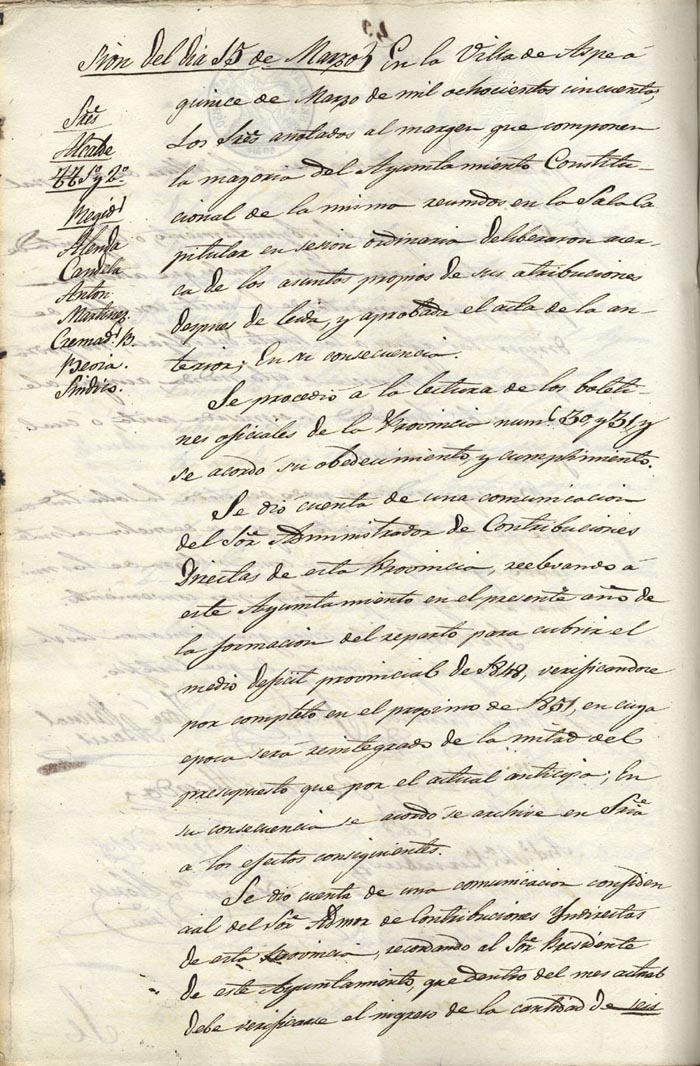 Sion del dia 15 de Marzo } En la Villa de Aspe á
quince de Marzo de mil ochocientos cincuenta,
Los Sres. anotados al margen que componen
la mayoria del Ayuntamiento Constitu-
cional de la misma reunidos en la Sala Ca
pitular en sesion ordinaria deliberaron acer-
ca de los asuntos propios de sus atribuciones
despues de leida, y aprobada el acta de la an-
terior; En su consecuencia.
Sres.
Alcalde
TT 1º y 2º
Regid.
Alenda
Candela
Anton
Martinez.
Cremad. B.
Beoria.
Sindico.
Se procedio á la lectura de los boleti-
nes oficiales de la Provincia num. 30 y 31 y
se acordó su obedecimiento y cumplimiento.
Se dió cuenta de una comunicacion
del Sor. Administrador de Contribuciones
Directas de esta Provincia, reelevando á
este Ayuntamiento en el presente año de
la formacion del reparto para cubrir el
medio deficit provincial de 1848, verificandose
por completo en el proximo de 1851, en cuya
epoca será reintegrado de la mitad del
presupuesto que por el actual anticipa; En
su consecuencia se acordó se archive en Sria
a los efectos consiguientes.
Se dio cuenta de una comunicacion confiden
cial del Sor. Admor de Contribuciones Yndirectas
de esta Provincia, recordando al Sor. Presidente
de este Ayuntamiento, que dentro del mes actual
debe verificarse el ingreso de la cantidad de seis